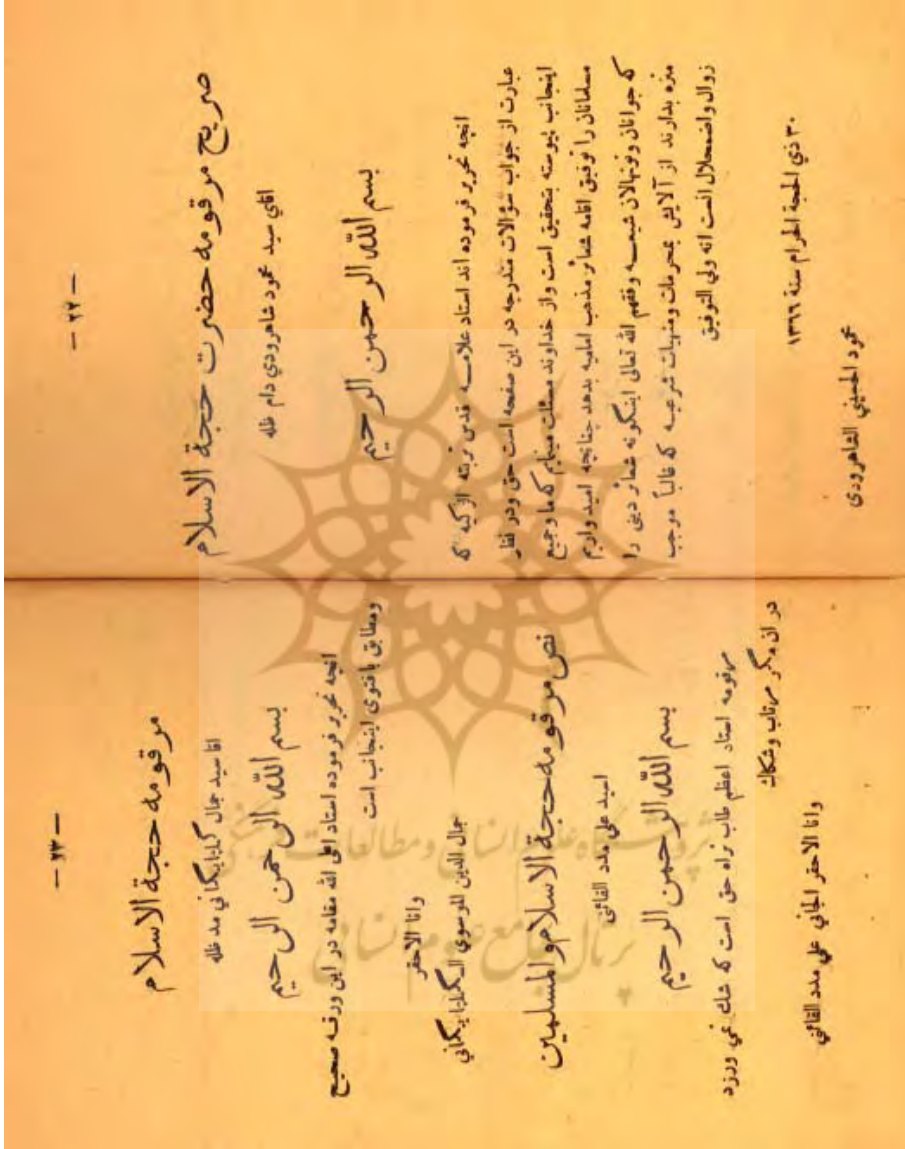 — ٢٢ —
صریح مرقومه حضرت حجة الاسلام
اقای سید محمود شاهرودي دام ظله
بسم الله الرحمن الرحيم
انچه تحریر فرموده اند استاد علامـه قدس تربته الزکیه که
عبارت از جواب سؤالات مندرجه در این صفحه است حق ودر نظر
اینجانب پیوسته بتحقیق است واز خداوند مسئلت مینمایم که ما وجمیع
مسلمانان را توفیق اقامه شعائر مذهب امامیه بدهد چنانچه امید وارم
که جوانان ونونهالان شیعـه وفقهم الله تعالی اینگونه شعائر دینی را
منزه بدارند از آلایش بمحرمات ومنهیات شرعیـه که غالباً موجب
زوال واضمحلال انست انه ولي التوفیق
٣٠ ذي الحجة الحرام سنة ١٣٦٦
محمود الحسيني الشاهرودی
— ٢٣ —
مرقومه حجة الاسلام
اقا سید جمال گلپایگاني مد ظله
بسم الله الرحمن الرحيم
انچه تحریر فرموده استاد اعلی الله مقامه در این ورقـه صحیح
ومطابق با فتوی اینجانب است
وانا الاحقر
جمال الدین الموسوي الـگلپایـگاني
نص مرقومه حجة الاسلام والمسلمین
السید علي مدد القائني
بسم الله الرحمن الرحيم
مرقومه استاد اعظم طاب ثراه حق است که شك نمي ورزد
در ان مگر مرتاب وشکاك
وانا الاحقر الجاني علي مدد القائني
پژوهشگاه علوم انسانی و مطالعات فرهنگی
پرتال جامع علوم انسانی